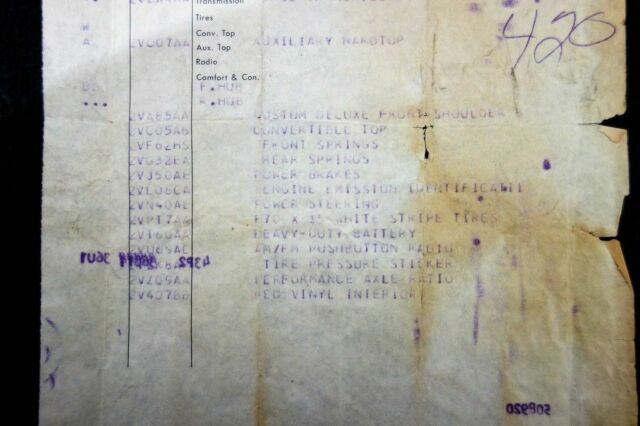 Transmission
Tires
W Conv. Top
A 2VC07AA Aux. Top AUXILIARY HARDTOP
Radio
Comfort & Con.
F.HUB
... R.HUB
420
2VA85AA CUSTOM DELUXE FRONT SHOULDER B
2VC05AB CONVERTIBLE TOP
2VF62HS FRONT SPRINGS
2VG32EA REAR SPRINGS
2VJ50AE POWER BRAKES
2VL08CA ENGINE EMISSION IDENTIFICATI
2VN40AE POWER STEERING
2VPT7AA F70 X 15 WHITE STRIPE TIRES
HEAVY-DUTY BATTERY
2VU69AC AM/FM PUSHBUTTON RADIO
TIRE PRESSURE STICKER
2VZ09AA PERFORMANCE AXLE RATIO
2V407BB RED VINYL INTERIOR
36U1 43P2
508920